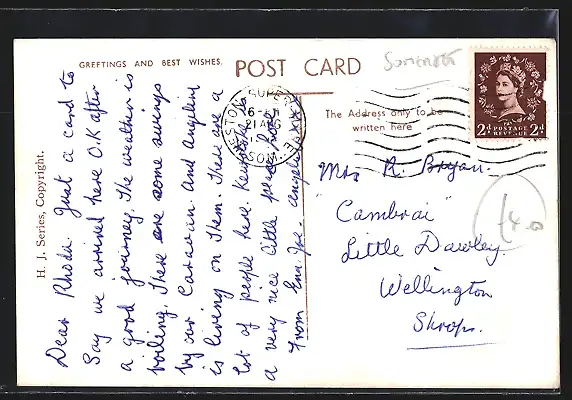 GREETINGS AND BEST WISHES.
POST CARD
Somerset
H. J. Series, Copyright.
The Address only to be
written here
WESTON SUPER MARE
SOM
2d POSTAGE REVENUE 2d
Dear Rhoda. Just a card to
Say we arrived here O.K after
a good journey. The weather is
boiling. There are some swings
by our Caravan. And Angelina
is living on them. There are a
lot of people here. is
a very nice little place
From Ena, Joe Angelina xxx
Mrs R. Bryan.
"Cambrai"
Little Dawley.
Wellington
Shrops.